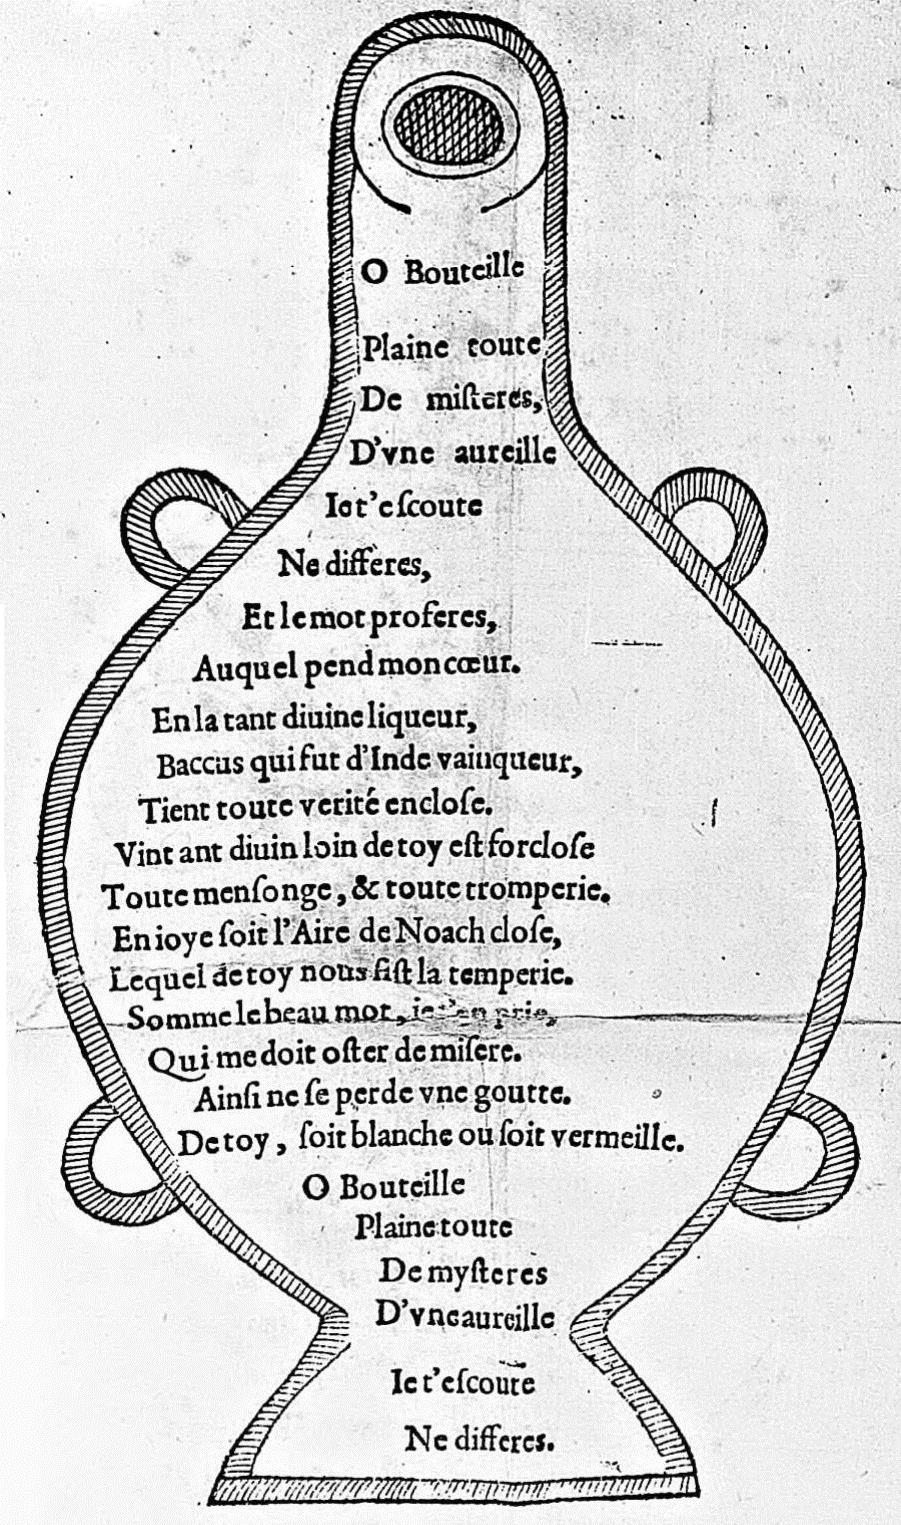 O Bouteille
Plaine toute
De miſteres,
D'vne aureille
Ie t'eſcoute
Ne differes,
Et le mot proferes,
Auquel pend mon cœur.
En la tant diuine liqueur,
Baccus qui fut d'Inde vainqueur,
Tient toute verité encloſe.
Vint ant diuin loin de toy eſt forcloſe
Toute menſonge, & toute tromperie.
En ioye ſoit l'Aire de Noach cloſe,
Lequel de toy nous fiſt la temperie.
Somme le beau mot, ie t'en prie,
Qui me doit oſter de miſere.
Ainſi ne ſe perde vne goutte.
De toy, ſoit blanche ou ſoit vermeille.
O Bouteille
Plaine toute
De myſteres
D'vne aureille
Ie t'eſcoute
Ne differes.